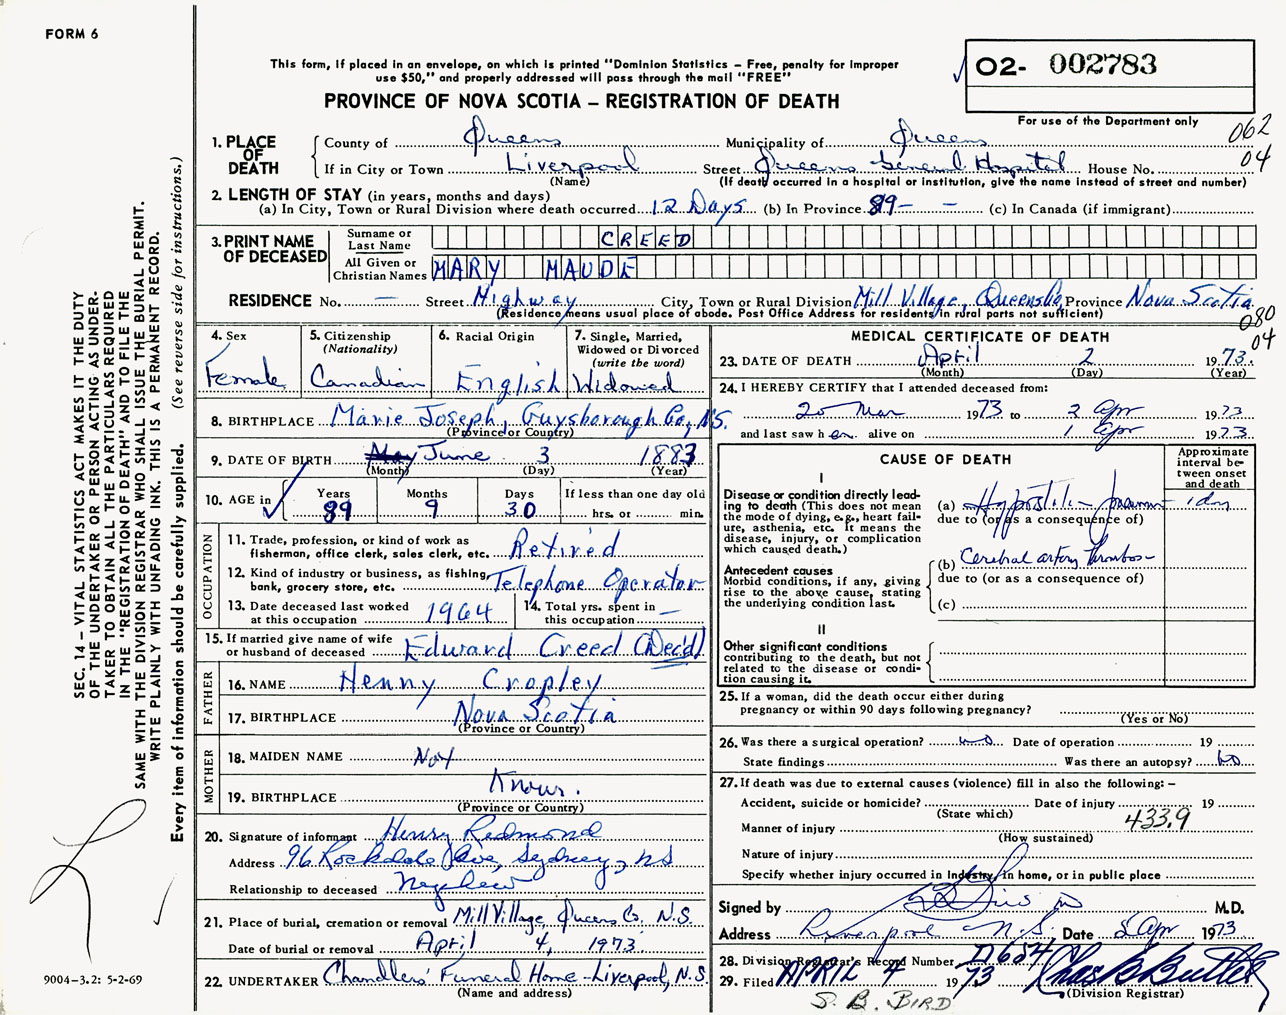 FORM 6
This form, if placed in an envelope, on which is printed "Dominion Statistics – Free, penalty for improper
use $50," and properly addressed will pass through the mail "FREE"
PROVINCE OF NOVA SCOTIA – REGISTRATION OF DEATH
02- 002783
For use of the Department only
062
04
1. PLACE OF DEATH
County of Queens Municipality of Queens
If in City or Town Liverpool Street Queens General Hospital House No.
(Name) (If death occurred in a hospital or institution, give the name instead of street and number)
2. LENGTH OF STAY (in years, months and days)
(a) In City, Town or Rural Division where death occurred 12 Days (b) In Province 89 – – (c) In Canada (if immigrant)
3. PRINT NAME OF DECEASED
Surname or Last Name CREED
All Given or Christian Names MARY MAUDE
RESIDENCE No. — Street Highway City, Town or Rural Division Mill Village, Queens Co Province Nova Scotia
(Residence means usual place of abode. Post Office Address for residents in rural parts not sufficient)
080
04
4. Sex
Female
5. Citizenship
(Nationality)
Canadian
6. Racial Origin
English
7. Single, Married,
Widowed or Divorced
(write the word)
Widowed
8. BIRTHPLACE Marie Joseph, Guysborough Co, N.S.
(Province or Country)
9. DATE OF BIRTH May June 3 1883
(Month) (Day) (Year)
10. AGE in
Years
89
Months
9
Days
30
If less than one day old
hrs. or min.
OCCUPATION
11. Trade, profession, or kind of work as
fisherman, office clerk, sales clerk, etc. Retired
12. Kind of industry or business, as fishing,
bank, grocery store, etc. Telephone Operator
13. Date deceased last worked
at this occupation 1964
14. Total yrs. spent in
this occupation —
15. If married give name of wife
or husband of deceased Edward Creed (Dec'd)
FATHER
16. NAME Henny Cropley
17. BIRTHPLACE Nova Scotia
(Province or Country)
MOTHER
18. MAIDEN NAME Not
19. BIRTHPLACE Known.
(Province or Country)
20. Signature of informant Henry Redmond
Address 96 Rockdale Ave, Sydney, NS
Relationship to deceased Nephew
21. Place of burial, cremation or removal Mill Village, Queens Co. N.S.
Date of burial or removal April 4, 1973
22. UNDERTAKER Chandlers' Funeral Home – Liverpool, N.S.
(Name and address)
MEDICAL CERTIFICATE OF DEATH
23. DATE OF DEATH April 2 1973.
(Month) (Day) (Year)
24. I HEREBY CERTIFY that I attended deceased from:
20 Mar 1973 to 2 Apr 1973
and last saw her alive on 1 Apr 1973
CAUSE OF DEATH
Approximate
interval be-
tween onset
and death
I
Disease or condition directly lead-
ing to death (This does not mean
the mode of dying, e.g., heart fail-
ure, asthenia, etc. It means the
disease, injury, or complication
which caused death.)
(a) Hypostatic pneumonia 1 day
due to (or as a consequence of)
Antecedent causes
Morbid conditions, if any, giving
rise to the above cause, stating
the underlying condition last.
(b) Cerebral artery thrombosis
due to (or as a consequence of)
(c)
II
Other significant conditions
contributing to the death, but not
related to the disease or condi-
tion causing it.
25. If a woman, did the death occur either during
pregnancy or within 90 days following pregnancy?
(Yes or No)
26. Was there a surgical operation? no Date of operation 19
State findings Was there an autopsy? no
27. If death was due to external causes (violence) fill in also the following: –
Accident, suicide or homicide? Date of injury 19
(State which)
Manner of injury 433.9
(How sustained)
Nature of injury
Specify whether injury occurred in Industry, in home, or in public place
Signed by M.D.
Address Liverpool N.S. Date 2 Apr 1973
28. Division Registrar's Record Number
29. Filed APRIL 4 1973 Chas B Butler
(Division Registrar)
S. B. BIRD
SEC. 14 – VITAL STATISTICS ACT MAKES IT THE DUTY
OF THE UNDERTAKER OR PERSON ACTING AS UNDER-
TAKER TO OBTAIN ALL THE PARTICULARS REQUIRED
IN THE "REGISTRATION OF DEATH" AND TO FILE THE
SAME WITH THE DIVISION REGISTRAR WHO SHALL ISSUE THE BURIAL PERMIT.
WRITE PLAINLY WITH UNFADING INK. THIS IS A PERMANENT RECORD.
Every item of information should be carefully supplied. (See reverse side for instructions.)
9004-3.2: 5-2-69